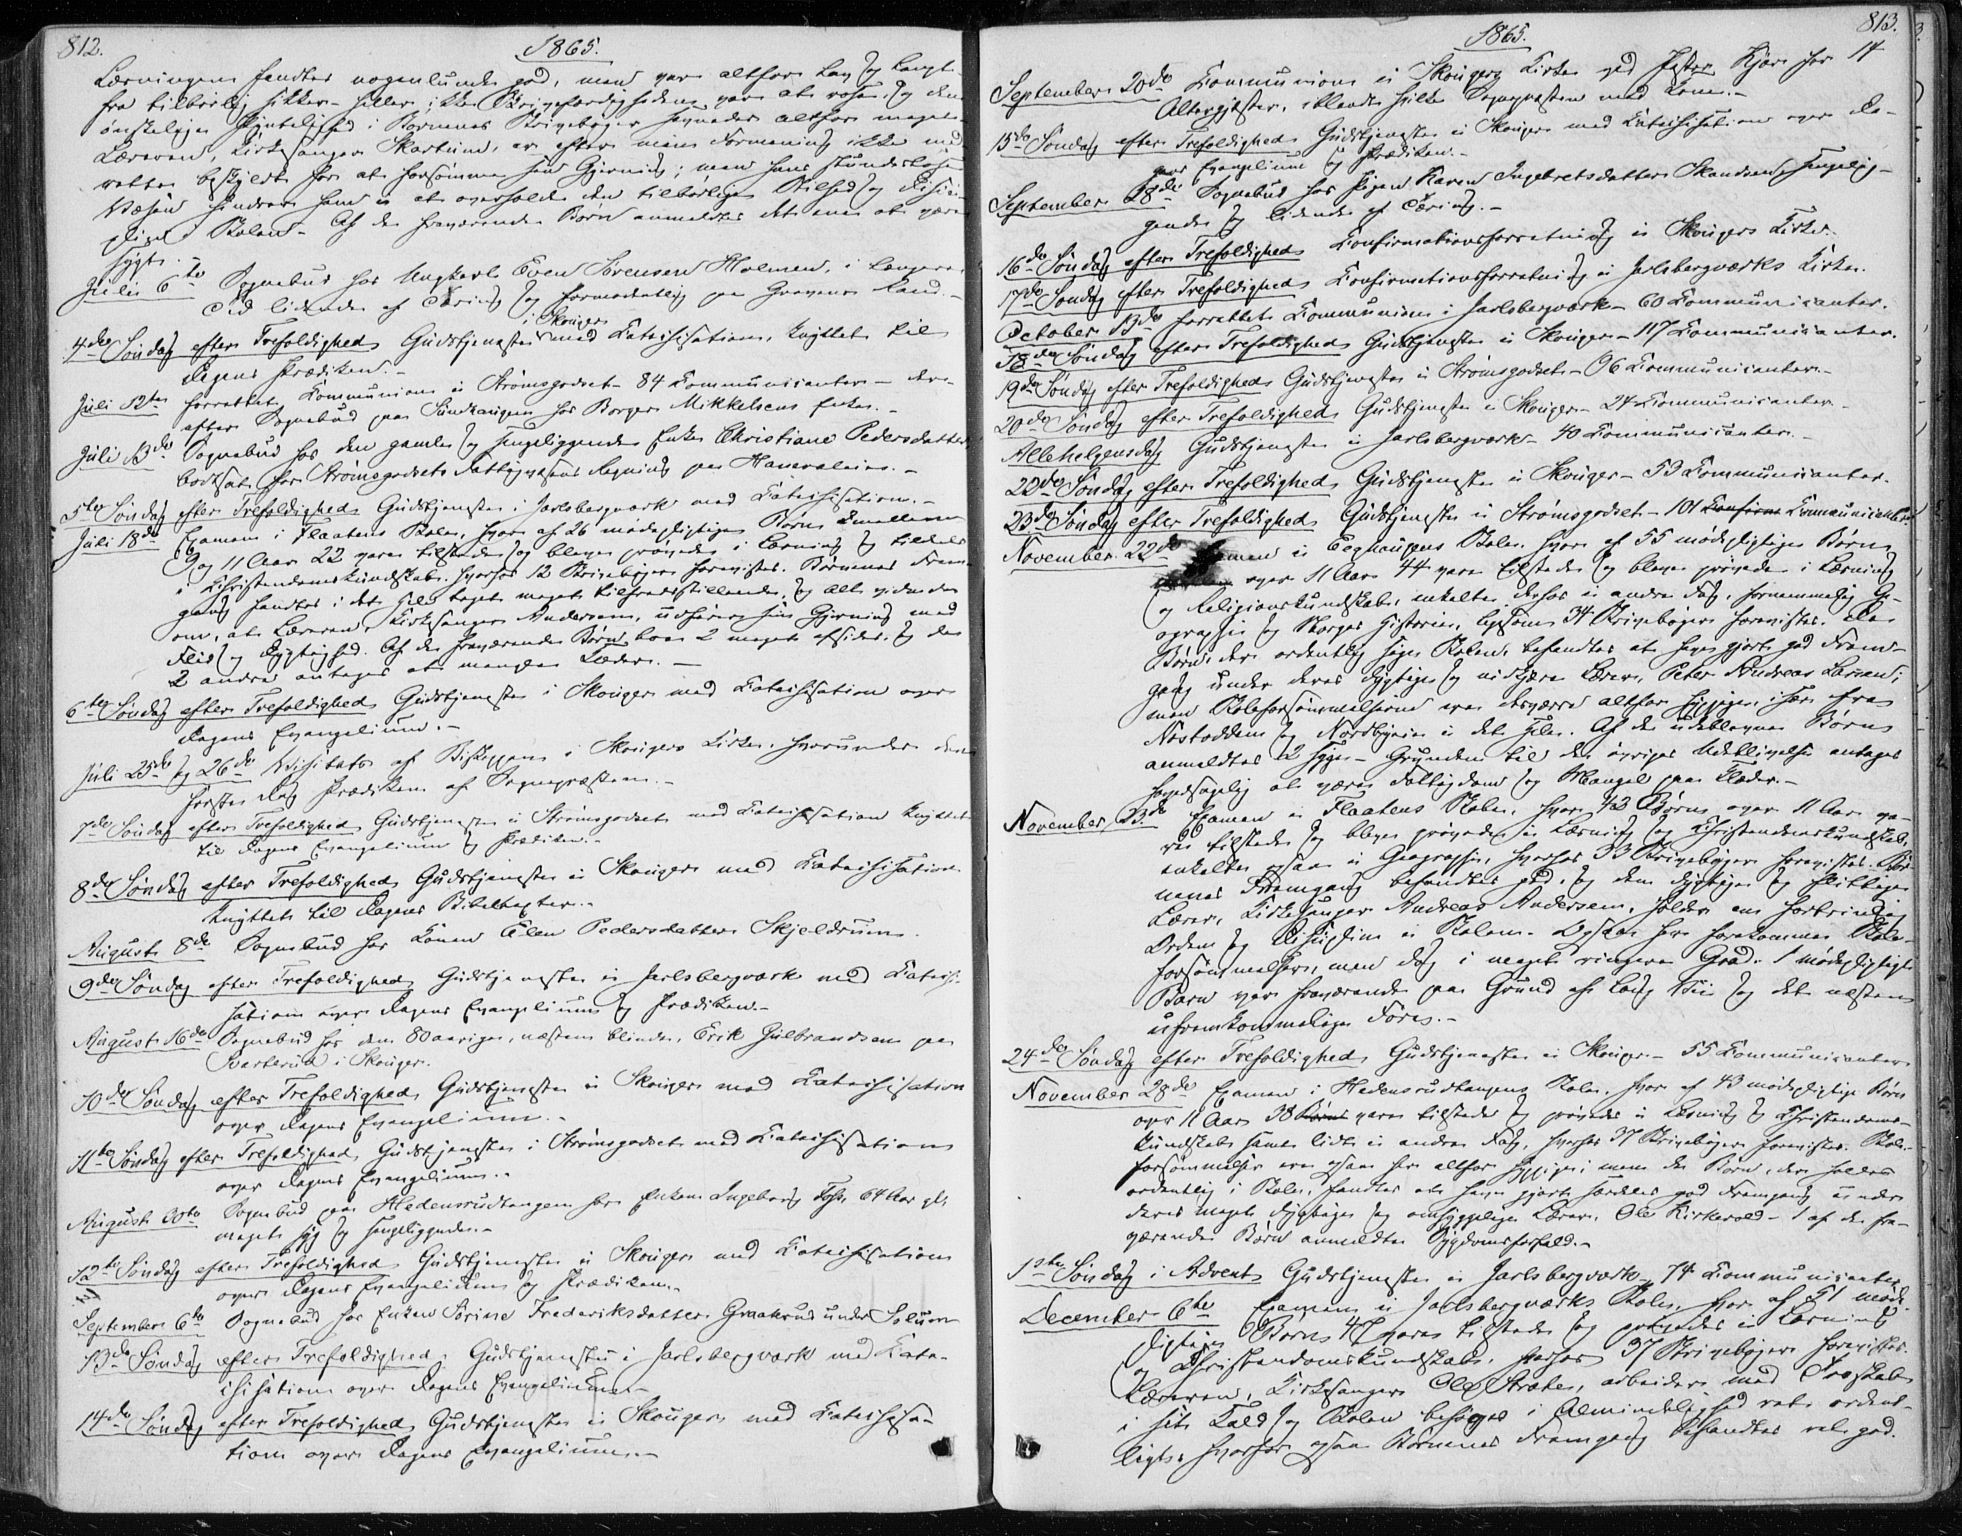 812.
1865.
Læsningen fandtes nogenlunde god, men var altfor lav og langt
fra tilbørlig sikker – heller ikke Skrivefærdigheden var at rose, og den
ønskelige Skjønhed i Børnenes Skrivebøger savnedes altfor meget.
Læreren, Kirkesanger Skarheim, er efter min Formening ikke med
rette beskyldt for at forsømme sin Gjerning; men hans stundesløse
Væsen hindrer ham i at overholde den tilbørlige Stilhed og Disci-
plin i Skolen. Af de fraværende Børn anmeldtes det ene at være
sygt.
Juli 6te Sognebud hos Ungkarl Even Sørensen Holmen, i længere
Tid lidende af Tæring og formodentlig paa Gravens Rand. –
4de Søndag efter Trefoldighed Gudstjeneste i Skouger med Katechisation, knyttet til
Dagens Prædiken. –
Juli 12te forrettet Communion i Strømsgodset – 84 Communicanter – der-
efter Sognebud paa Landtangen hos Borger Mikkelsens Enke. –
Juli 13de Sognebud hos den gamle og sengeliggende Enke Christiane Pedersdatter
bortsat for Strømsgodsets Fattigvæsens Regning paa Haneraleia. –
5te Søndag efter Trefoldighed Gudstjeneste i Jarlsbergværk med Katechisation. –
Juli 18de Examen i Flaatens Skole, hvor af 26 mødepligtige Børn imellem
9 og 11 Aar 22 vare tilstede og bleve prøvede i Læsning og tildels
i Christendomskundskab, hvorhos 12 Skrivebøger forevistes. Børnenes Frem-
gang fandtes i det Hele taget meget tilfredsstillende, og Alt vidnede
om, at Læreren, Kirkesanger Andersen, udfører sin Gjerning med
Flid og Dygtighed. Af de fraværende Børn boer 2 meget afsides, og de
2 andre antages at mangle Klæder. –
6te Søndag efter Trefoldighed Gudstjeneste i Skouger med Katechisation over
Dagens Evangelium. –
Juli 25de og 26de Visitats af Biskoppen i Skougers Kirke, hvorunder den
første Dag Prædiken af Sognepræsten. –
7de Søndag efter Trefoldighed Gudstjeneste i Strømsgodset med Katechisation knyttet
til Dagens Evangelium og Prædiken. –
8de Søndag efter Trefoldighed Gudstjeneste i Skouger med Katechisation
knyttet til Dagens Bibeltexter. –
August 8de Sognebud hos Konen Elen Pedersdatter Skjeldrum.
9de Søndag efter Trefoldighed Gudstjeneste i Jarlsbergværk med Katechi-
sation over Dagens Evangelium og Prædiken. –
August 16de Sognebud hos den 80 aarige, næsten blinde, Erik Gulbrandsen paa
Svarterud i Skouger.
10de Søndag efter Trefoldighed Gudstjeneste i Skouger med Katechisation
over Dagens Evangelium. –
11te Søndag efter Trefoldighed Gudstjeneste i Strømsgodset med Katechisation
over Dagens Evangelium. –
August 30te Sognebud paa Hedensrudtangen hos Enken Ingeborg 64 Aar gl.
meget syg og sengeliggende. –
12te Søndag efter Trefoldighed Gudstjeneste i Skouger med Katechisation
over Dagens Evangelium og Prædiken. –
September 6te Sognebud hos Enken Sørine Frederiksdatter Graakrud under Solum
13de Søndag efter Trefoldighed Gudstjeneste i Jarlsbergværk med Kate-
chisation over Dagens Evangelium. –
14de Søndag efter Trefoldighed Gudstjeneste i Skouger med Katechisa-
tion over Dagens Evangelium. –
813.
1865.
September 20de Communion i Skougers Kirke ved Pastor Kjær for 14
Altergjæster, iblandt hvilke Sognepræsten med Kone. –
15de Søndag efter Trefoldighed Gudstjeneste i Skouger med Katechisation over Da-
gens Evangelium og Prædiken. –
September 28de Sognebud hos Pigen Karen Ingebretsdatter Skandsen, sengelig-
gende og lidende af Tæring. –
16de Søndag efter Trefoldighed Confirmationsforretning i Skougers Kirke.
17de Søndag efter Trefoldighed Confirmationsforretning i Jarlsbergværks Kirke.
October 13de forrettet Communion i Jarlsbergværk – 60 Communicanter.
18de Søndag efter Trefoldighed Gudstjeneste i Skouger – 117 Communicanter.
19de Søndag efter Trefoldighed Gudstjeneste i Strømsgodset – 96 Communicanter. –
20de Søndag efter Trefoldighed Gudstjeneste i Skouger – 24 Communicanter. –
Allehelgensdag Gudstjeneste i Jarlsbergværk – 40 Communicanter. –
22de Søndag efter Trefoldighed Gudstjeneste i Skouger – 53 Communicanter.
23de Søndag efter Trefoldighed Gudstjeneste i Strømsgodset – 101 Confirm Communicanter
November 22de Examen i Eeghaugens Skole, hvor af 55 mødepligtige Børn
over 11 Aar 44 vare tilstede og bleve prøvede i Læsning
og Religionskundskab, enkelte derhos i andre Fag, fornemmelig Ge-
ographie og Norges Historie, ligesom 34 Skrivebøger forevistes. De
Børn, der ordentlig søge Skolen, befandtes at have gjort god Frem-
gang under deres dygtige og nidkjære Lærer, Peter Andreas Larsen;
men Skoleforsømmelserne ere desværre altfor hyppige, især fra
Nøstodden og Nordbyeie i det Hele. Af de udeblevne Børn
anmeldtes 2 syge – Grunden til de øvriges Udeblivelse antages
hovedsagelig at være Fattigdom og Mangel paa Klæder. –
November 23de Examen i Flaatens Skole, hvor 43 Børn over 11 Aar va-
re tilstede og bleve prøvede i Læsning og Christendomskundskab,
enkelte ogsaa i Geographie, hvorhos 33 Skrivebøger forevistes. Bør-
nenes Fremgang befandtes god, og den dygtige og flittige
Lærer, Kirkesanger Andreas Andersen, holder en fortrinlig
Orden og Disciplin i Skolen. Ogsaa her forekommer Skole-
forsømmelser, men dog i meget ringere Grad. 1 mødepligtigt
Barn var fraværende paa Grund af lang Vei og det næsten
ufremkommelige Føre. –
24de Søndag efter Trefoldighed Gudstjeneste i Skouger – 55 Communicanter
November 28de Examen i Hedensrudtangens Skole, hvor af 43 mødepligtige Børn
over 11 Aar 38 Børn vare tilstede og prøvede i Læsning og Christendoms-
kundskab samt lidt i andre Fag, hvorhos 37 Skrivebøger forevistes. Skole-
forsømmelser ere ogsaa her altfor hyppige; men de Børn, der holdes
ordentlig i Skole, fandtes at have gjort særdeles god Fremgang under
deres meget dygtige og omhyggelige Lærer, Ole Kirkevold – 1 af de fra-
værende Børn anmeldtes Sygdomsforfald. –
1ste Søndag i Advent Gudstjeneste i Jarlsbergværk – 74 Communicanter
December 6te Examen i Jarlsbergværks Skole, hvor af 51 møde-
pligtige Børn 47 vare tilstede og prøvedes i Læsning
og Christendomskundskab, hvorhos 37 Skrivebøger forevistes.
Læreren, Kirkesanger Ole Arabe, arbeider med Troskab
i sit Kald og Skolen besøges i Almindelighed ret ordent-
ligt, hvorfor ogsaa Børnenes Fremgang befandtes vel god.